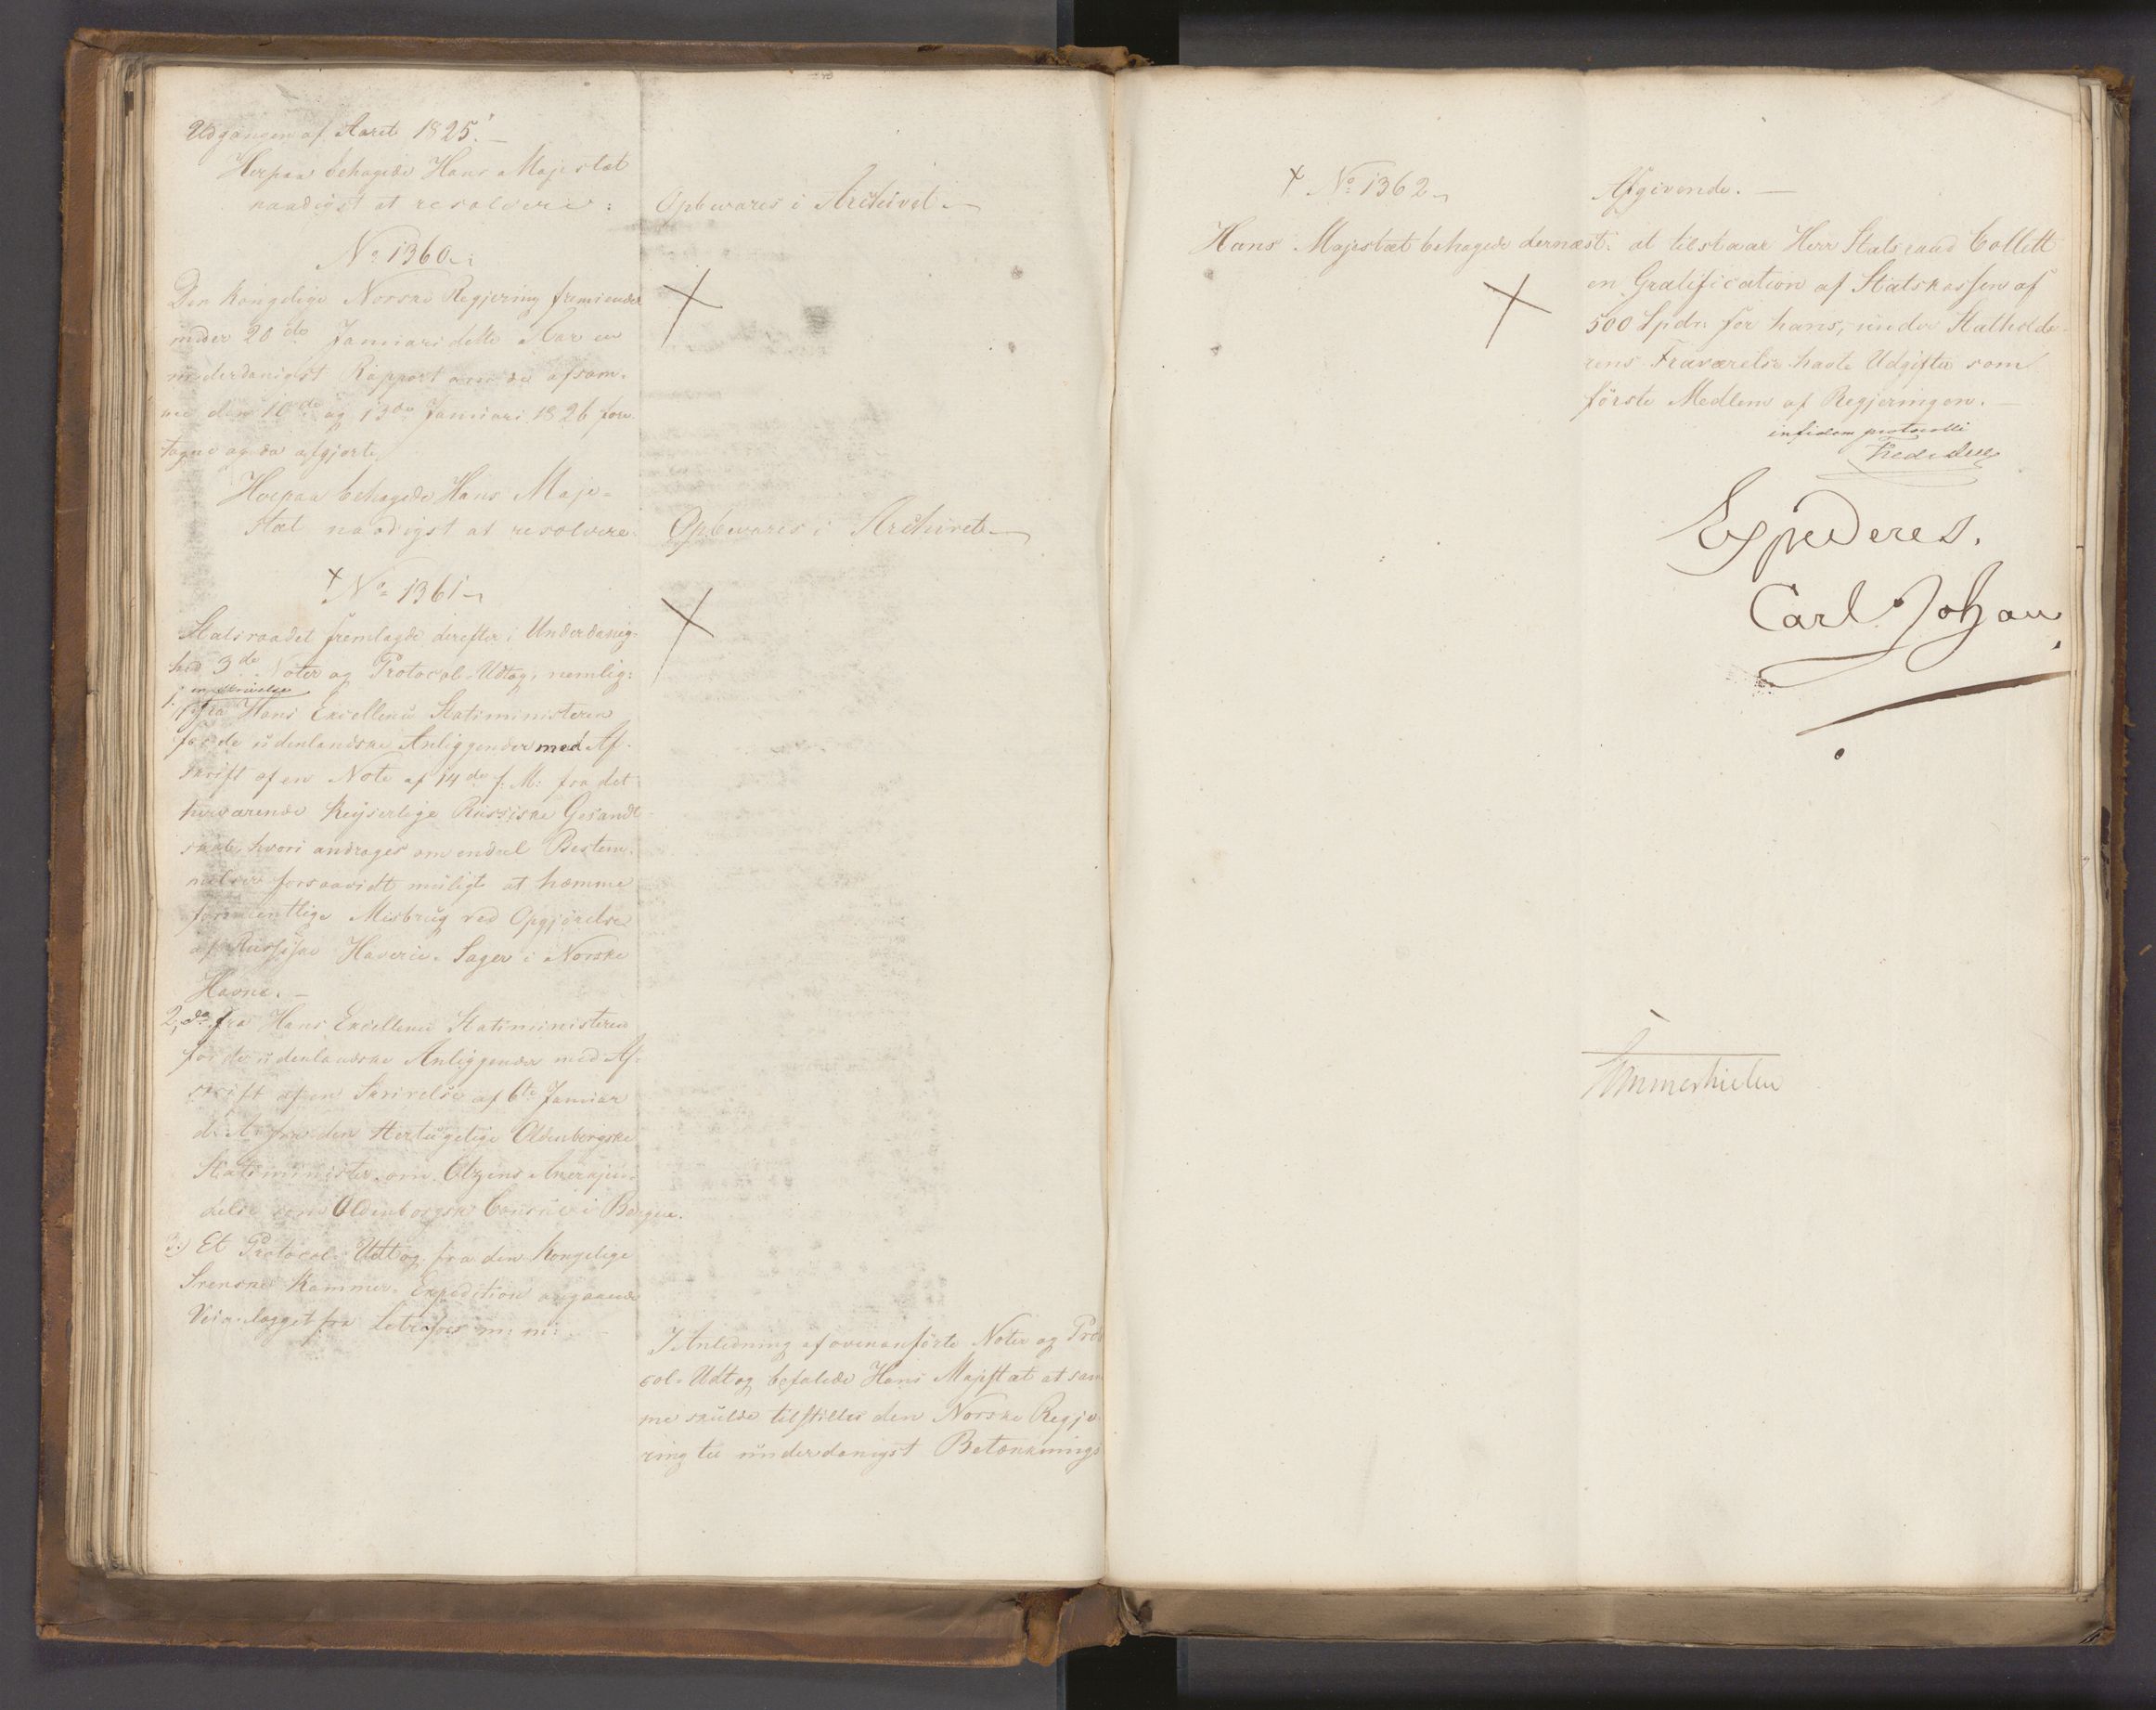 Udgangen af Aaret 1825. —
Herpaa behagede Hans Majestæt
naadigst at resolvere:
Opbevares i Archivet. —
No 1360.
Den Kongelige Norske Regjering fremsender
under 20de Januari dette Aar en
underdanigst Rapport om de af samme
den 10de og 13de Januari 1826 fore-
tagne og da afgjorte
Herpaa behagede Hans Maje-
stæt naadigst at resolvere.
Opbevares i Archivet —
No 1361
Statsraadet fremlagde derefter i Underdanig-
hed 3de Noter og Protocol-Udtog, nemlig:
1. en Skrivelse
fra Hans Excellence Statsministeren
for de udenlandske Anliggender med Af-
skrift af en Note af 14de f: M: fra det
herværende Keyserlige Russiske Gesandt-
skab, hvori andrages om endeel Bestem-
melser forsaavidt muligt at hæmme
formentlige Misbrug ved Opgjørelse
af Russiske Haverie-Sager i Norske
Havne. —
2, do fra Hans Excellence Statsministeren
for de udenlandske Anliggender med Af-
skrift af en Skrivelse af 6te Januar
d. A. fra den Hertugelige Oldenborgske
Statsminister om
som Oldenborgsk Consul i Bergen.
3.) Et Protocol-Udtog fra den Kongelige
Svenske Kammer-Expedition angaaende
Veianlægget fra m: m:
I Anledning af ovenanførte Noter og Proto
col-Udtog befalede Hans Majestæt at sam
me skulde tilstilles den Norske Regje-
ring til underdanigst Betænknings
No 1362
Afgivende. —
Hans Majestæt behagede dernæst: at tilstaae Herr Statsraad Collett
en Gratification af Statskassen af
500 Spdr: for hans, under Statholde-
rens Fraværelse havte Udgifter som
første Medlem af Regjeringen. —
in fidem protocolli
Fredr Due
Expederes.
Carl Johan